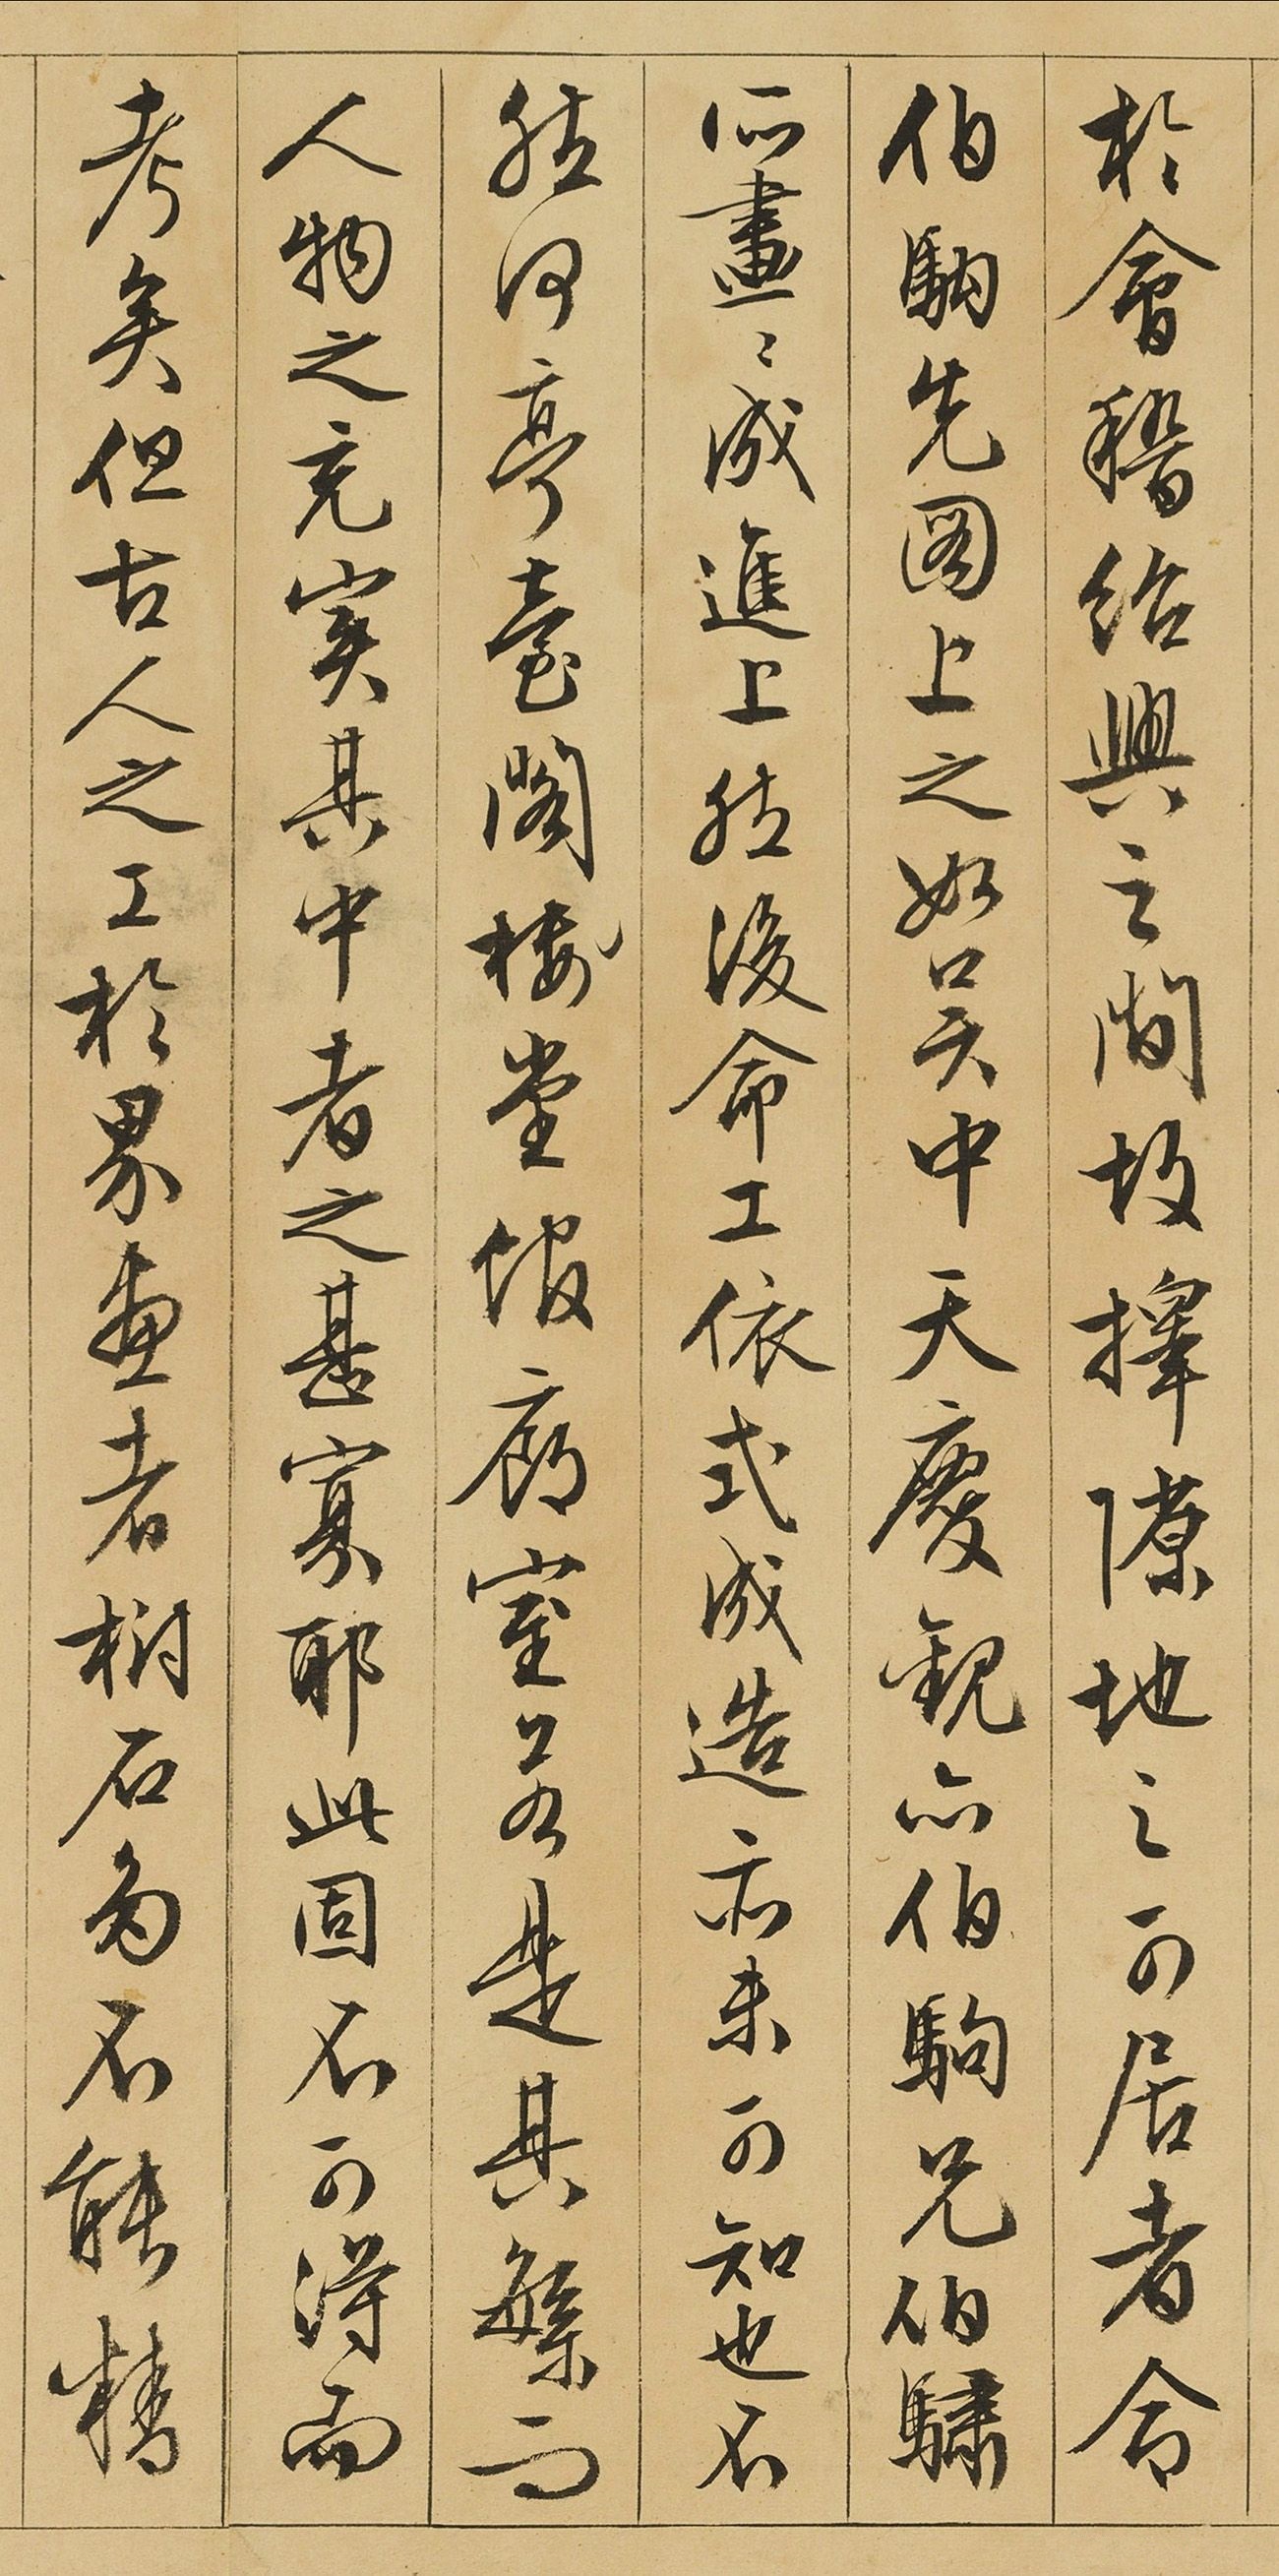 於會稽紹興之間故擇隙地之可居者令
伯駒先圖上之如吳中天慶觀亦伯駒兄伯驌
所畫〻成進上然後命工依式成造亦未可知也不
然何亭臺閣樓堂館廊室若是其繁而
人物之充實其中者之甚寡耶此固不可得而
考矣但古人之工於界畫者樹石多不能精